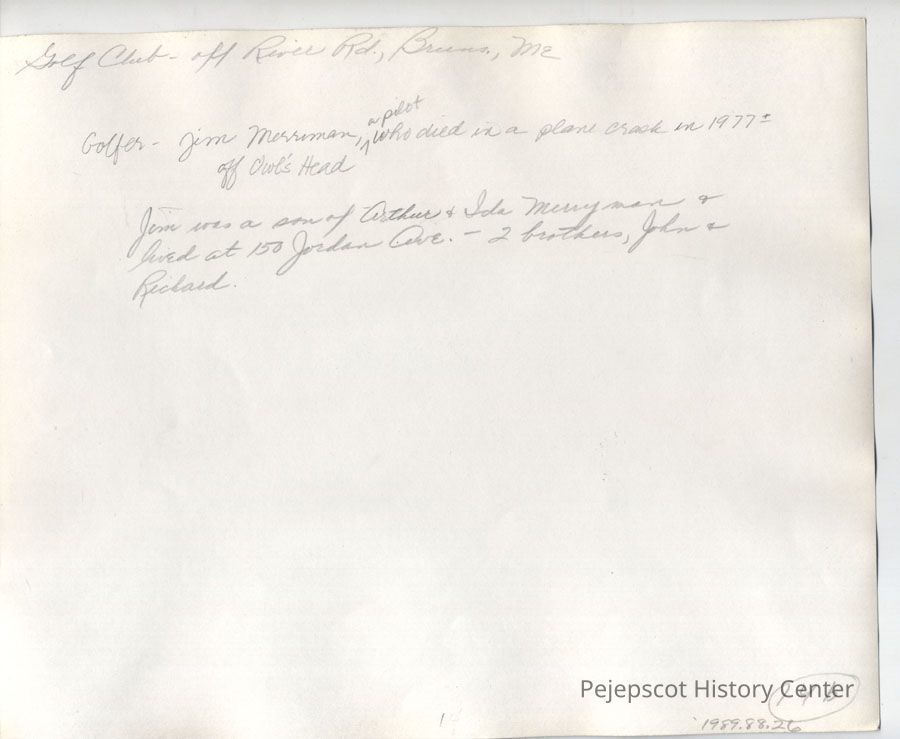 Golf Club - off River Rd., Bruns., Me
a pilot
Golfer - Jim Merriman, who died in a plane crash in 1977±
off Owl's Head
Jim was a son of Arthur & Ida Merryman &
lived at 150 Jordan Ave. - 2 brothers, John &
Richard.
Pejepscot History Center
1989.88.26